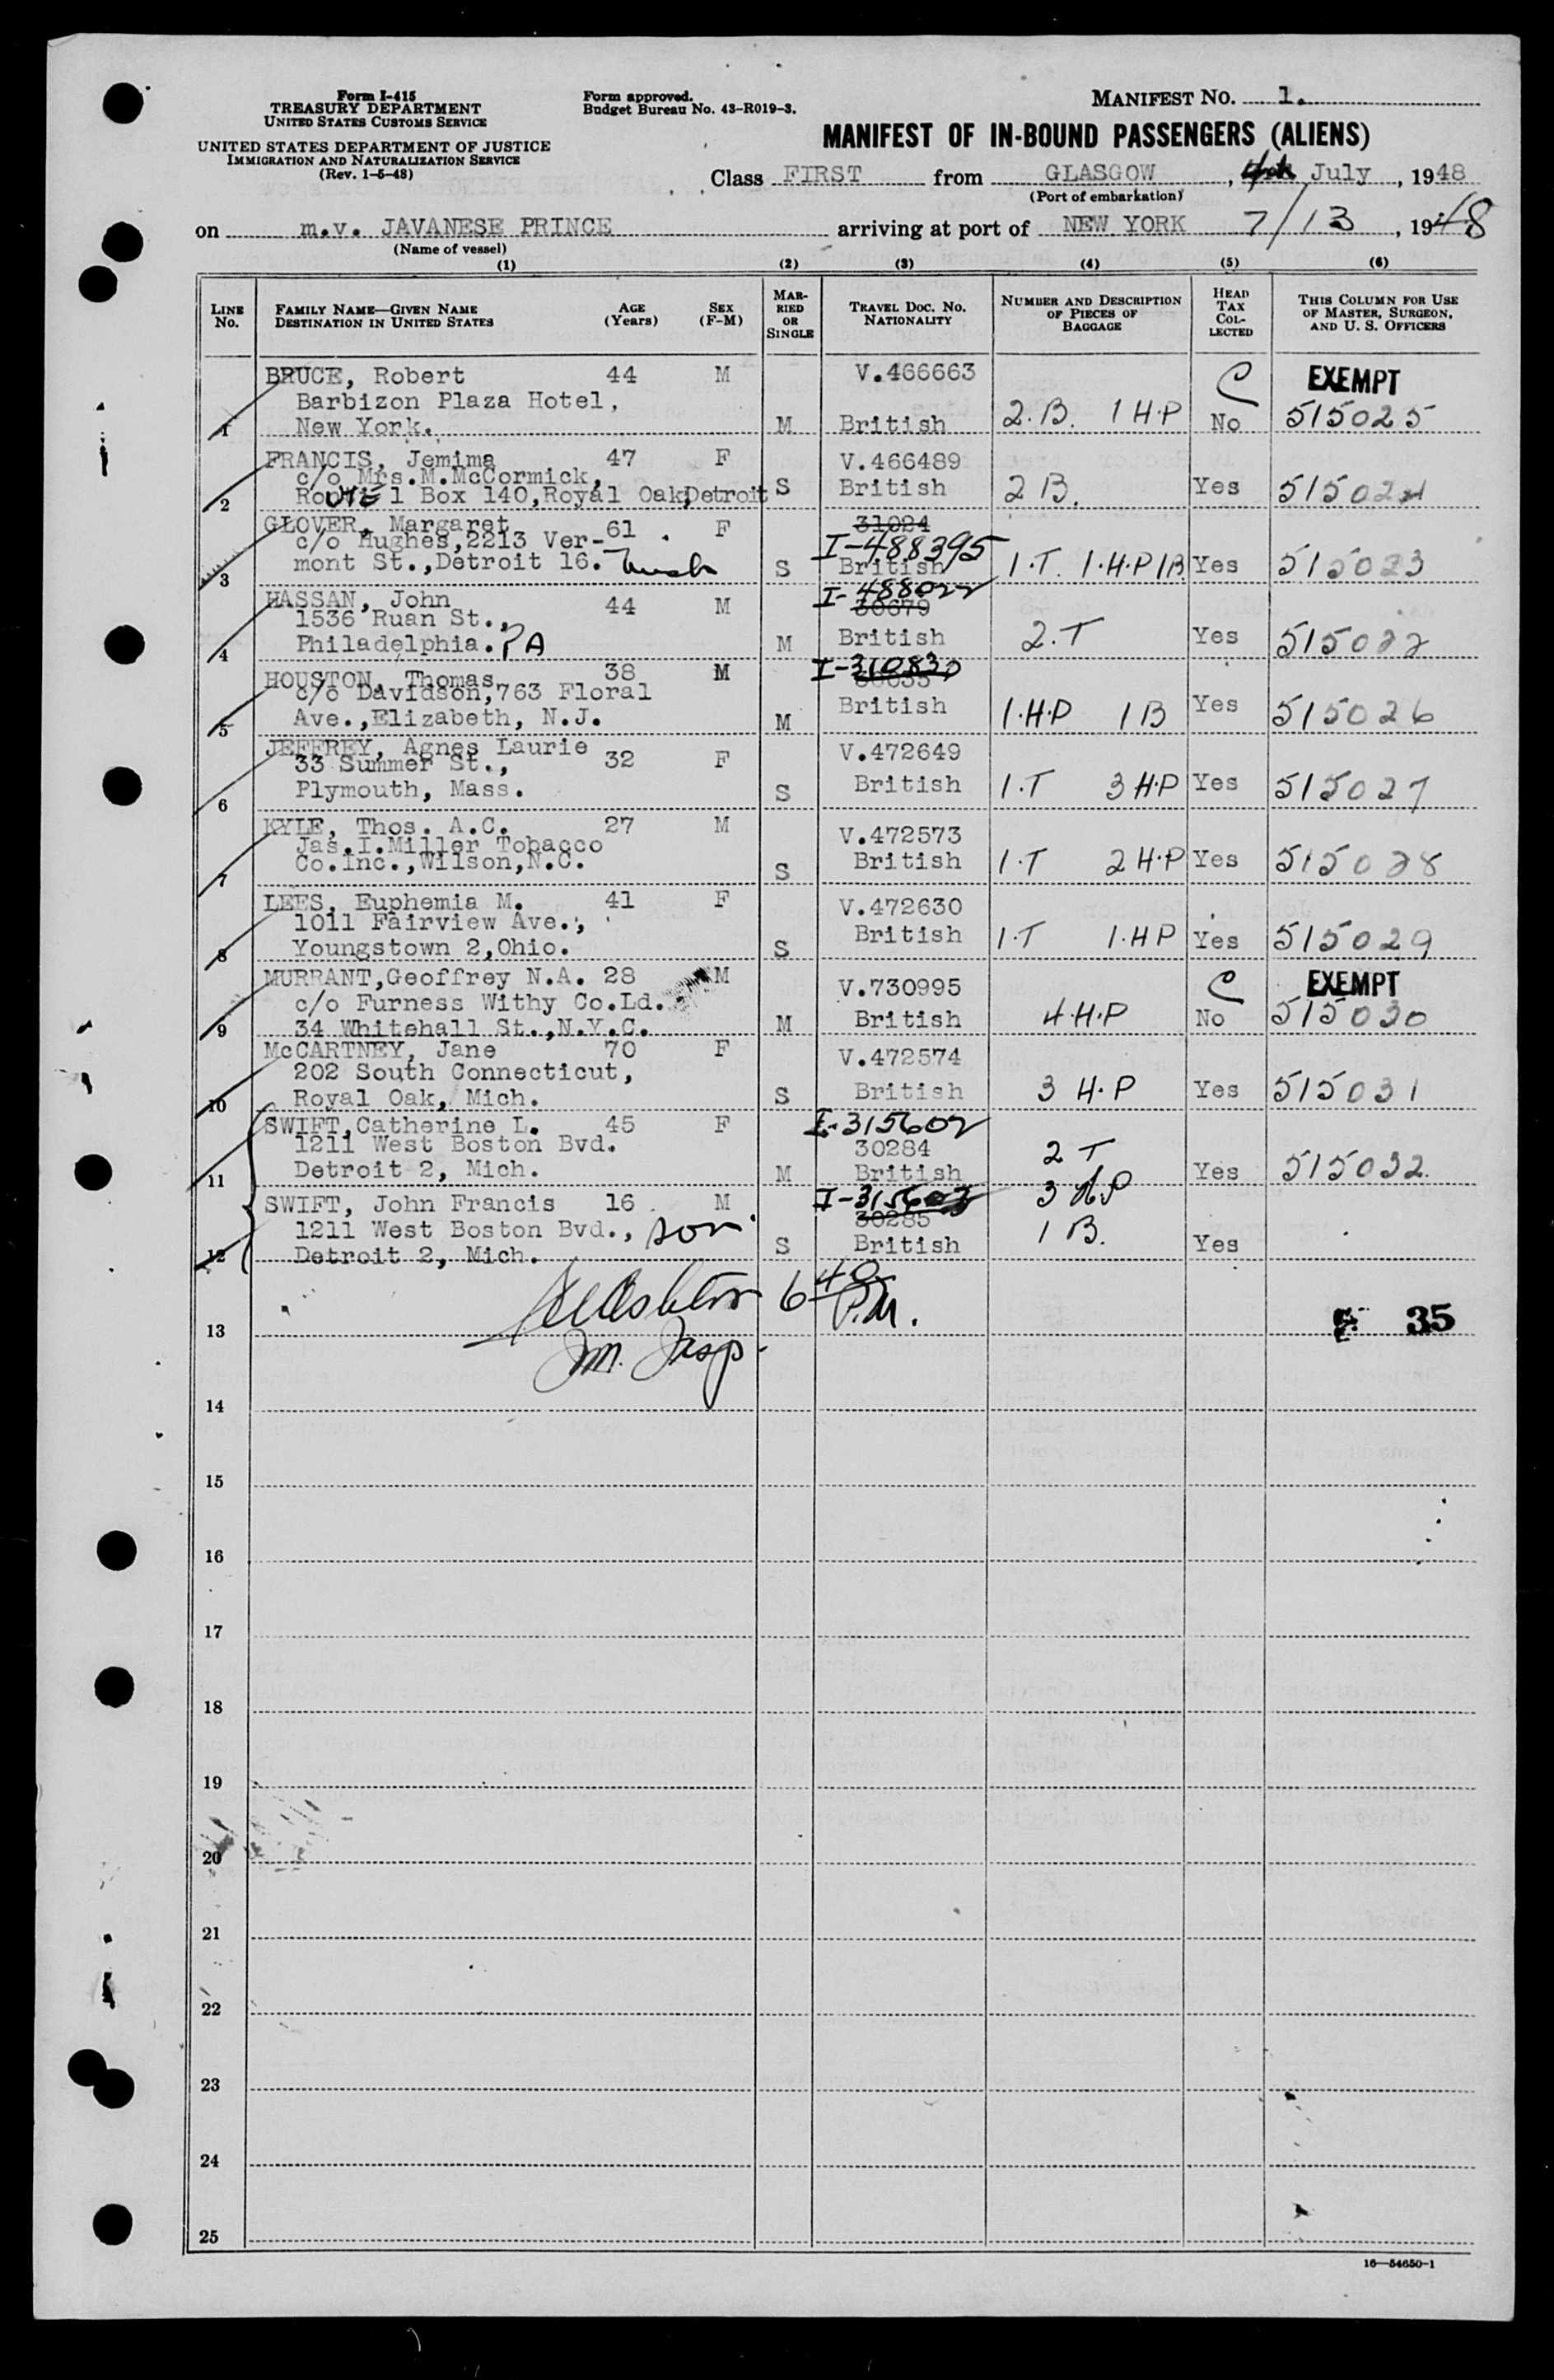 Form I-415
TREASURY DEPARTMENT
UNITED STATES CUSTOMS SERVICE
UNITED STATES DEPARTMENT OF JUSTICE
IMMIGRATION AND NATURALIZATION SERVICE
(Rev. 1-5-48)
Form approved.
Budget Bureau No. 43-R019-3.
MANIFEST No. 1.
MANIFEST OF IN-BOUND PASSENGERS (ALIENS)
Class FIRST from GLASGOW, July, 1948
(Port of embarkation)
on m.v. JAVANESE PRINCE arriving at port of NEW YORK 7/13, 1948
(Name of vessel)
(1) (2) (3) (4) (5) (6)
LINE No. FAMILY NAME—GIVEN NAME DESTINATION IN UNITED STATES AGE (Years) SEX (F-M) MARRIED OR SINGLE TRAVEL DOC. NO. NATIONALITY NUMBER AND DESCRIPTION OF PIECES OF BAGGAGE HEAD TAX COLLECTED THIS COLUMN FOR USE OF MASTER, SURGEON, AND U. S. OFFICERS
BRUCE, Robert 44 M V.466663 C EXEMPT
Barbizon Plaza Hotel,
1 New York. M British 2.B. 1 H.P No 515025
FRANCIS, Jemima 47 F V.466489
c/o Mrs.M.McCormick,
2 ROUTE 1 Box 140,Royal Oak,Detroit S British 2 B. Yes 515024
GLOVER, Margaret 61 F 31024
c/o Hughes,2213 Ver- I-488395
3 mont St.,Detroit 16. S British 1.T. 1.H.P 1B Yes 515023
HASSAN, John 44 M I-488022 30679
1536 Ruan St.,
4 Philadelphia. PA M British 2.T Yes 515022
HOUSTON, Thomas 38 M I-310830
c/o Davidson,763 Floral
5 Ave.,Elizabeth, N.J. M British 1.H.P 1 B Yes 515026
JEFFREY, Agnes Laurie 32 F V.472649
33 Summer St.,
6 Plymouth, Mass. S British 1.T 3 H.P Yes 515027
KYLE, Thos. A.C. 27 M V.472573
Jas.I.Miller Tobacco
7 Co.Inc.,Wilson,N.C. S British 1.T 2 H.P Yes 515028
LEES, Euphemia M. 41 F V.472630
1011 Fairview Ave.,
8 Youngstown 2,Ohio. S British 1.T 1.H P Yes 515029
MURRANT,Geoffrey N.A. 28 M V.730995 C EXEMPT
c/o Furness Withy Co.Ld.
9 34 Whitehall St.,N.Y.C. M British 4.H.P No 515030
McCARTNEY, Jane 70 F V.472574
202 South Connecticut,
10 Royal Oak, Mich. S British 3 H.P Yes 515031
SWIFT,Catherine L. 45 F I-315602
1211 West Boston Bvd. 30284
11 Detroit 2, Mich. M British 2 T Yes 515032.
SWIFT, John Francis 16 M I-315603 30285 3 H.P
1211 West Boston Bvd., son
12 Detroit 2, Mich. S British 1 B. Yes
6 40 P.M.
13 35
Im. Insp.
14
15
16
17
18
19
20
21
22
23
24
25
16—54650-1